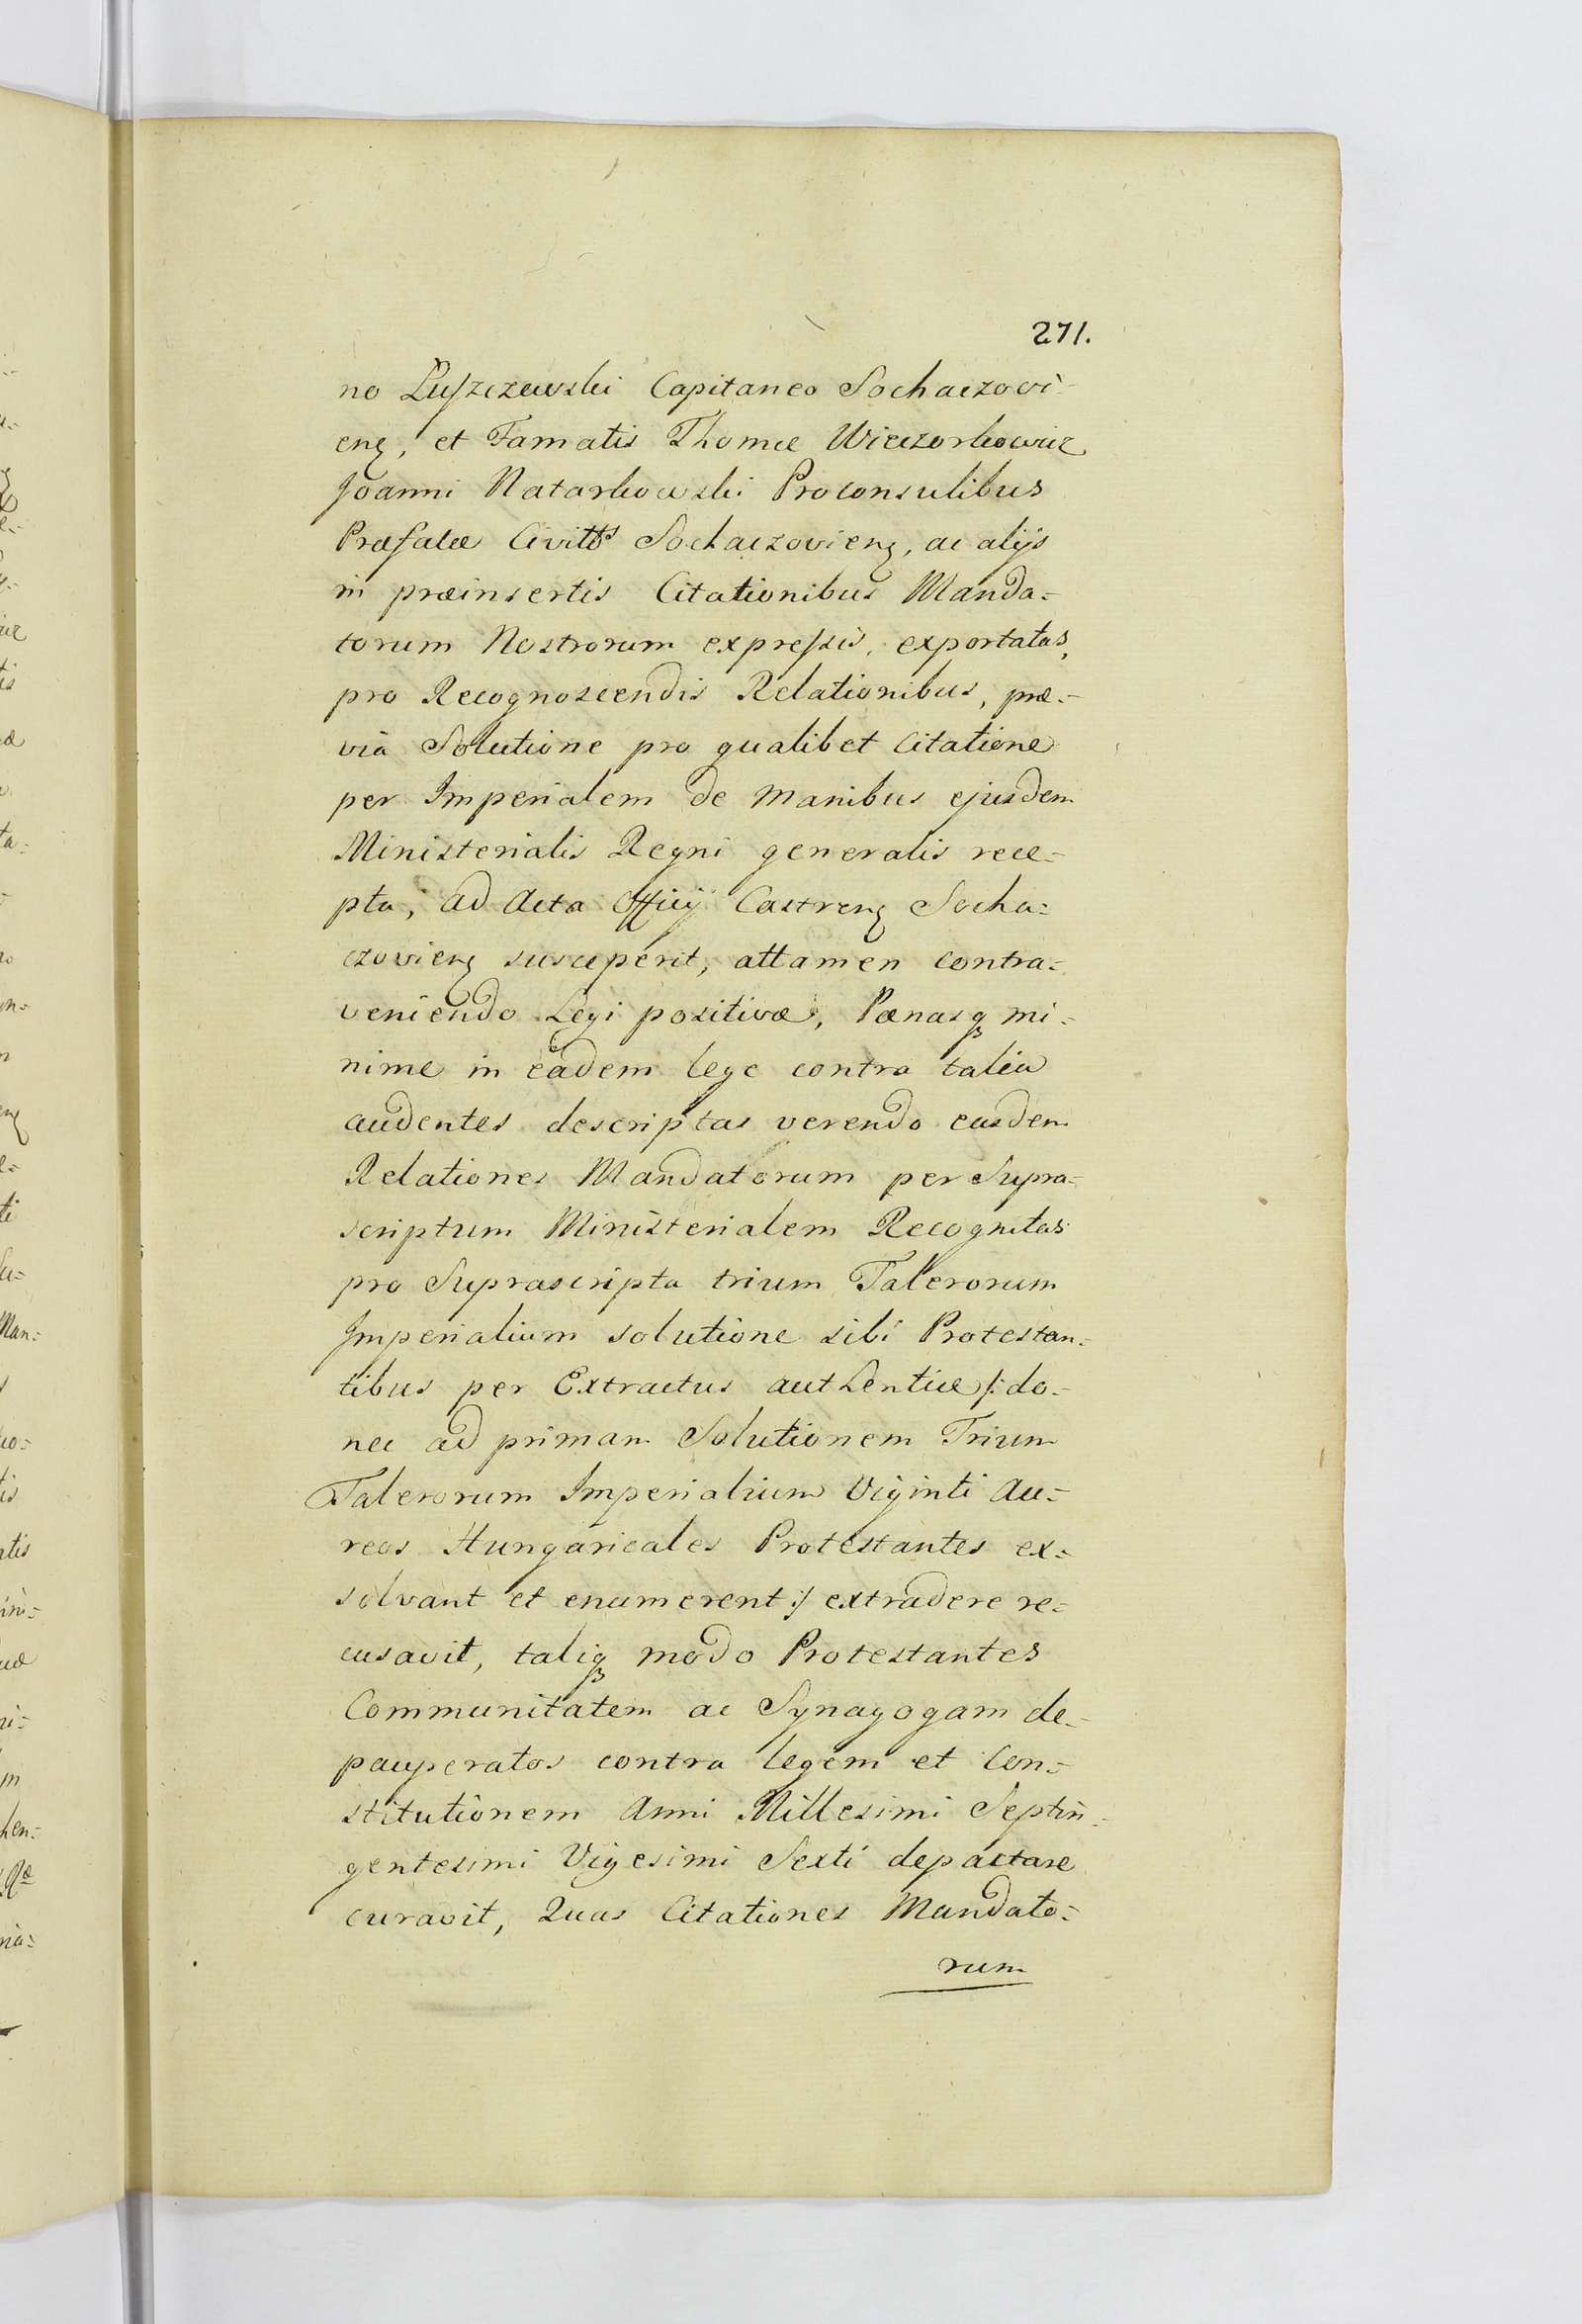 271.
no Luszczewski Capitaneo Sochaczovi-
enꝫ, et Famatis Thomæ Wieczorkowicz
Joanni Natarkowski Proconsulibus
Præfatæ Civitts Sochaczovienꝫ, ac alijs
in præinsertis Citationibus Manda=
torum Nostrorum expressis, exportatas,
pro Recognoscendis Relationibus, præ=
via Solutione pro qualibet Citatione
per Imperialem de manibus ejusdem
Ministerialis Regni generalis rece=
pta, ad Acta Officij Castrenꝫ Socha=
czovienꝫ susceperit, attamen contra=
veniendo Legi positivæ, Pænasqꝫ mi=
nime in eâdem lege contra talia
audentes descriptas verendo easdem
Relationes Mandatorum per Supra=
scriptum Ministerialem Recognitas
pro Suprascripta trium Talerorum
Imperialium solutione sibi Protestan=
tibus per Extractus authentice /: do=
nec ad primam Solutionem Trium
Talerorum Imperialium Viginti Au=
reos Hungaricales Protestantes ex=
solvant et enumerent :/ extradere re=
cusavit, taliqꝫ modo Protestantes
Communitatem ac Synagogam de=
pauperatos contra legem et Con=
stitutionem Anni Millesimi Septin=
gentesimi Vigesimi Sexti depactare
curavit, Quas Citationes Mandato=
rum